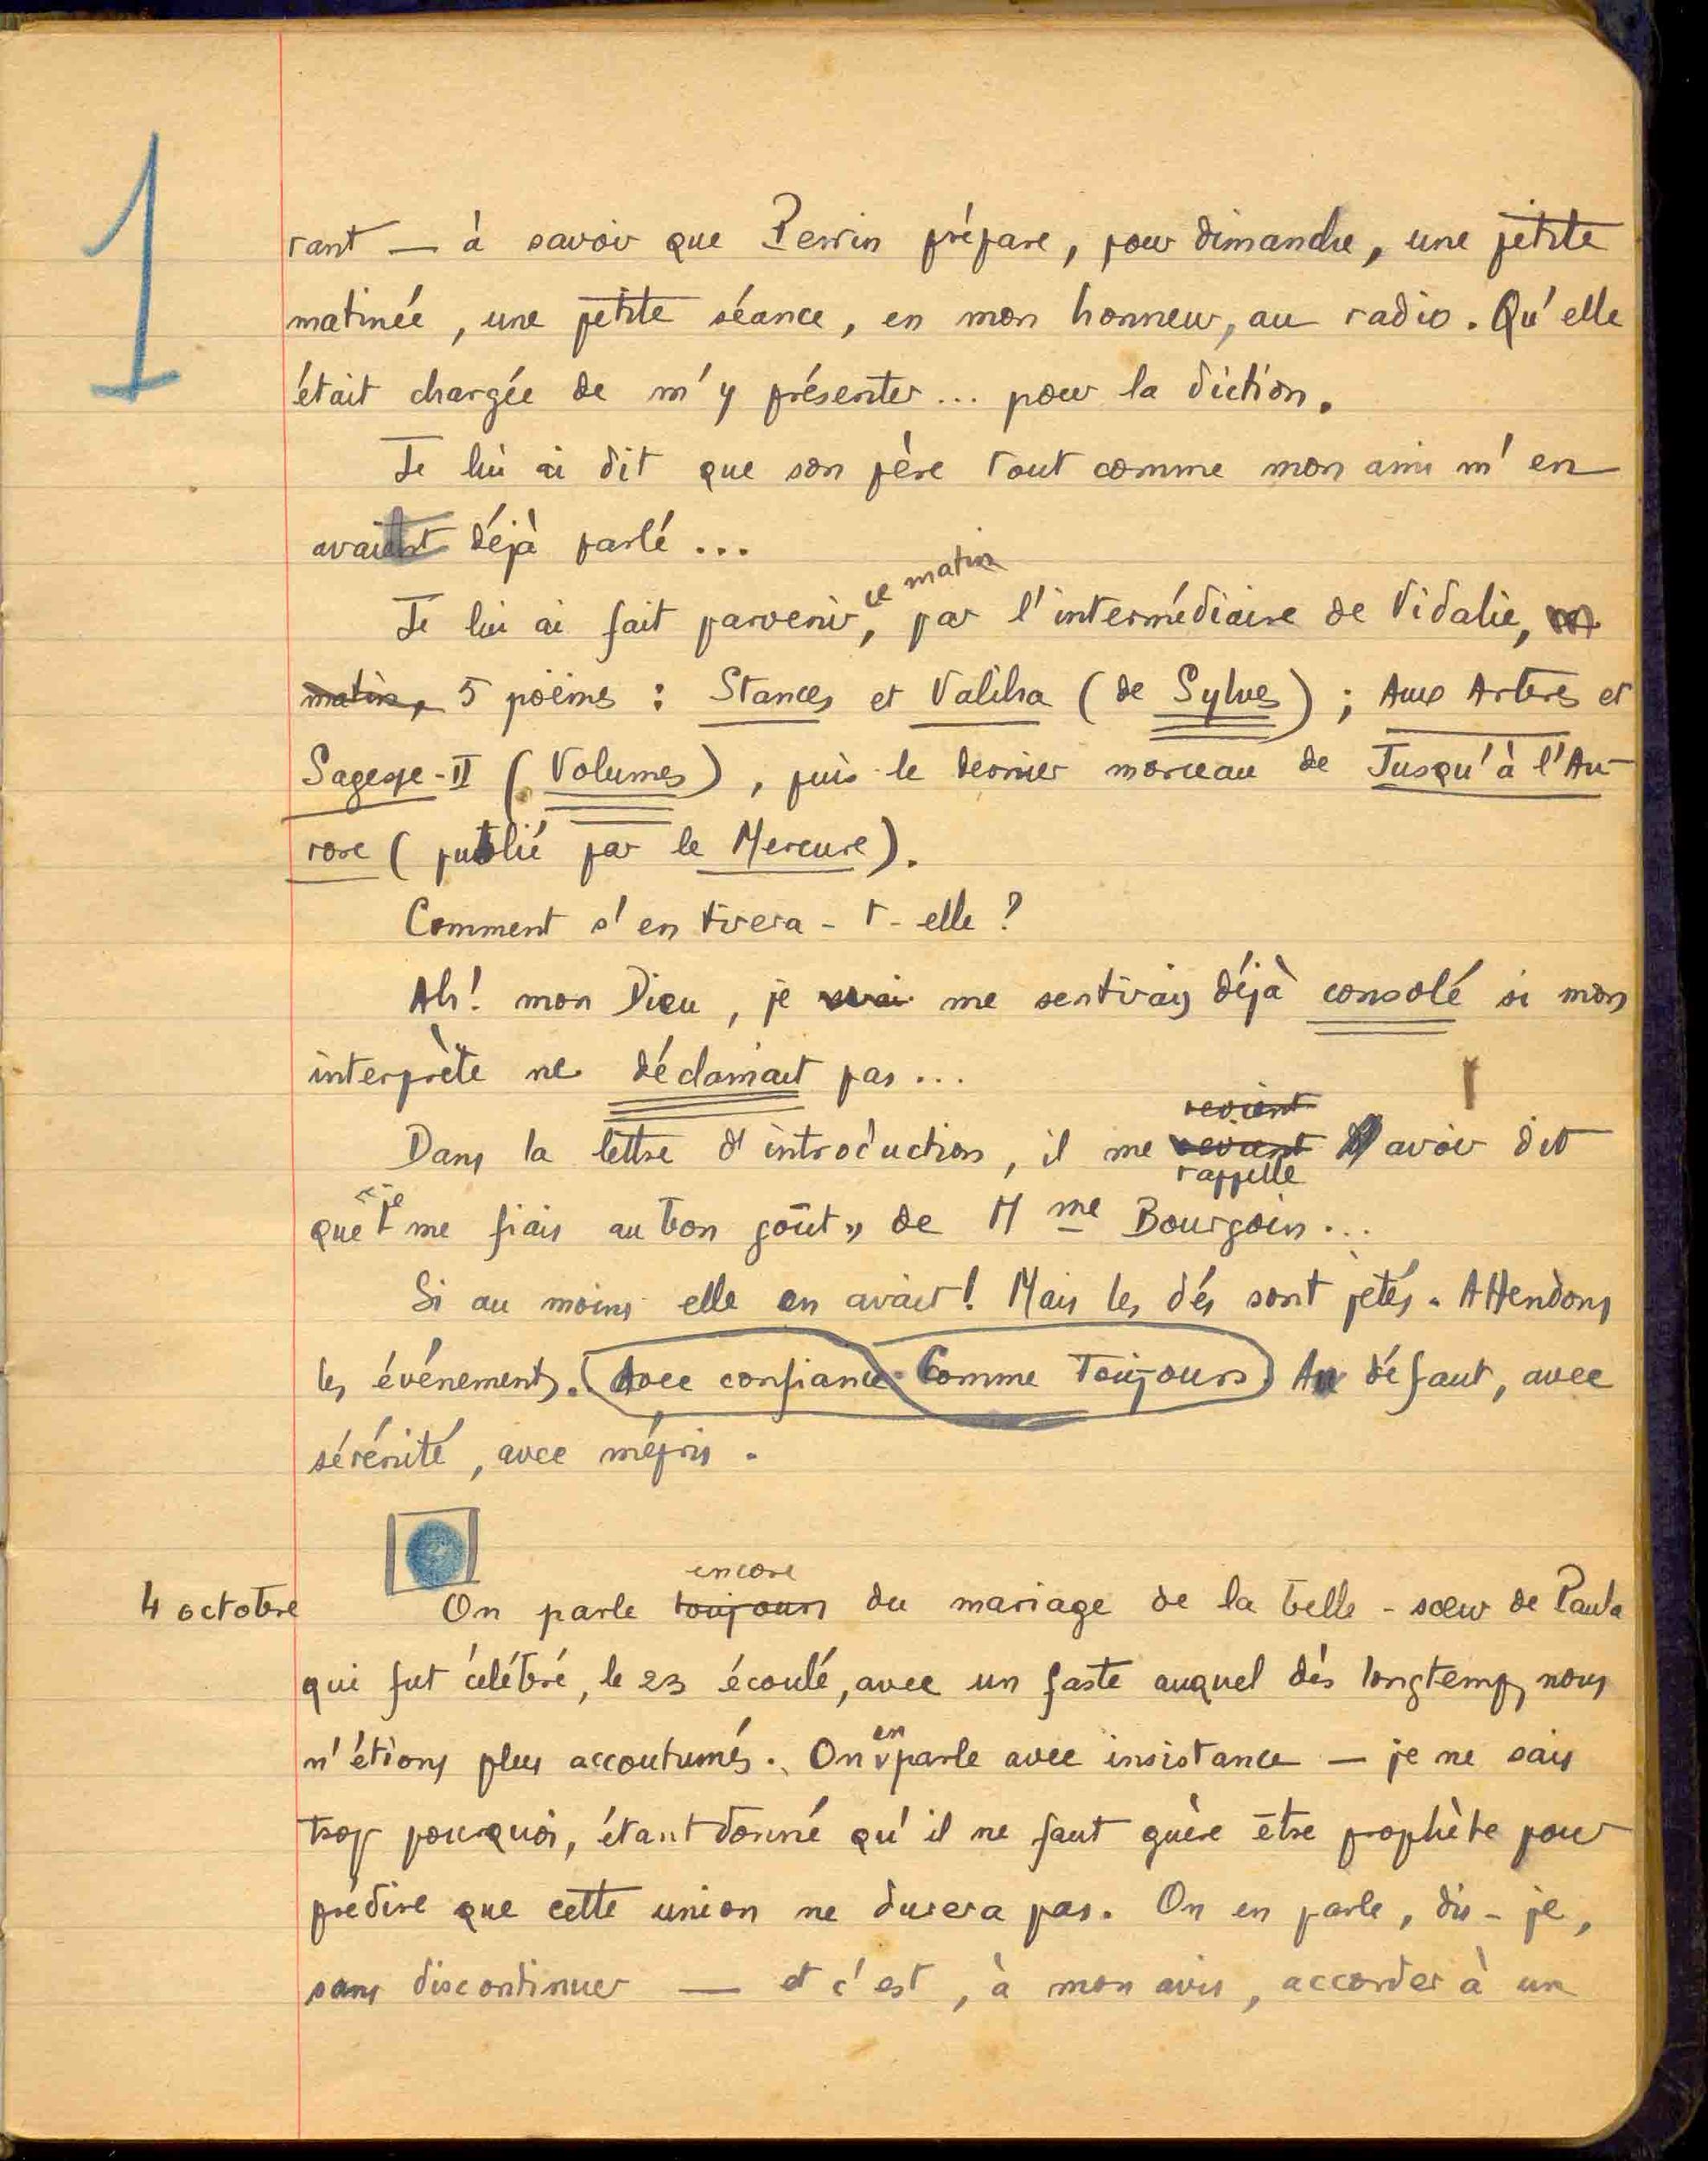 1
rant — à savoir que Perrin prépare, pour dimanche, une petite
matinée, une petite séance, en mon honneur, au radio. Qu'elle
était chargée de m'y présenter... pour la diction.
Je lui ai dit que son père tout comme mon ami m'en
avait déjà parlé...
Je lui ai fait parvenir, ce matin, par l'intermédiaire de Vidalie, m
matin, 5 poèmes : Stances et Valiha (de Sylves) ; Aux Arbres et
Sagesse-II (Volumes), puis le dernier morceau de Jusqu'à l'Au-
rore (publié par le Mercure).
Comment s'en tirera-t-elle ?
Ah! mon Dieu, je me sentirais déjà consolé si mon
interprète ne déclamait pas...
revient
Dans la lettre d'introduction, il me revient avoir dit
rappelle
que « je me fiais au bon goût » de Mme Bourgoin...
Si au moins elle en avait! Mais les dés sont jetés. Attendons
les événements. Avec confiance. Comme toujours. Au défaut, avec
sérénité, avec mépris.
encore
4 octobre On parle toujours du mariage de la belle-sœur de Paula
qui fut célébré, le 23 écoulé, avec un faste auquel dès longtemps nous
n'étions plus accoutumés. On en parle avec insistance — je ne sais
trop pourquoi, étant donné qu'il ne faut guère être prophète pour
prédire que cette union ne durera pas. On en parle, dis-je,
sans discontinuer — et c'est, à mon avis, accorder à un